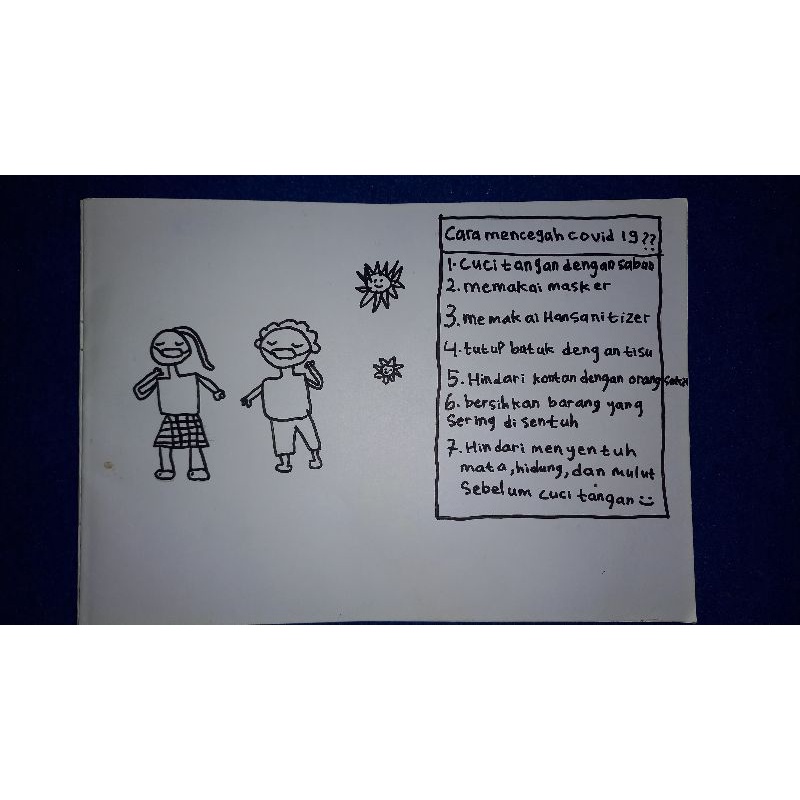 Cara mencegah covid 19??
1. Cuci tangan dengan sabun
2. memakai masker
3. memakai Hansanitizer
4. tutup batuk dengan tisu
5. Hindari kontan dengan orang sakit
6. bersihkan barang yang
Sering disentuh
7. Hindari menyentuh
mata, hidung, dan mulut
Sebelum cuci tangan